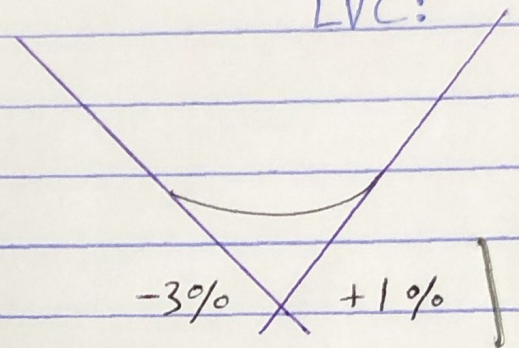 LVC:
-3% +1%